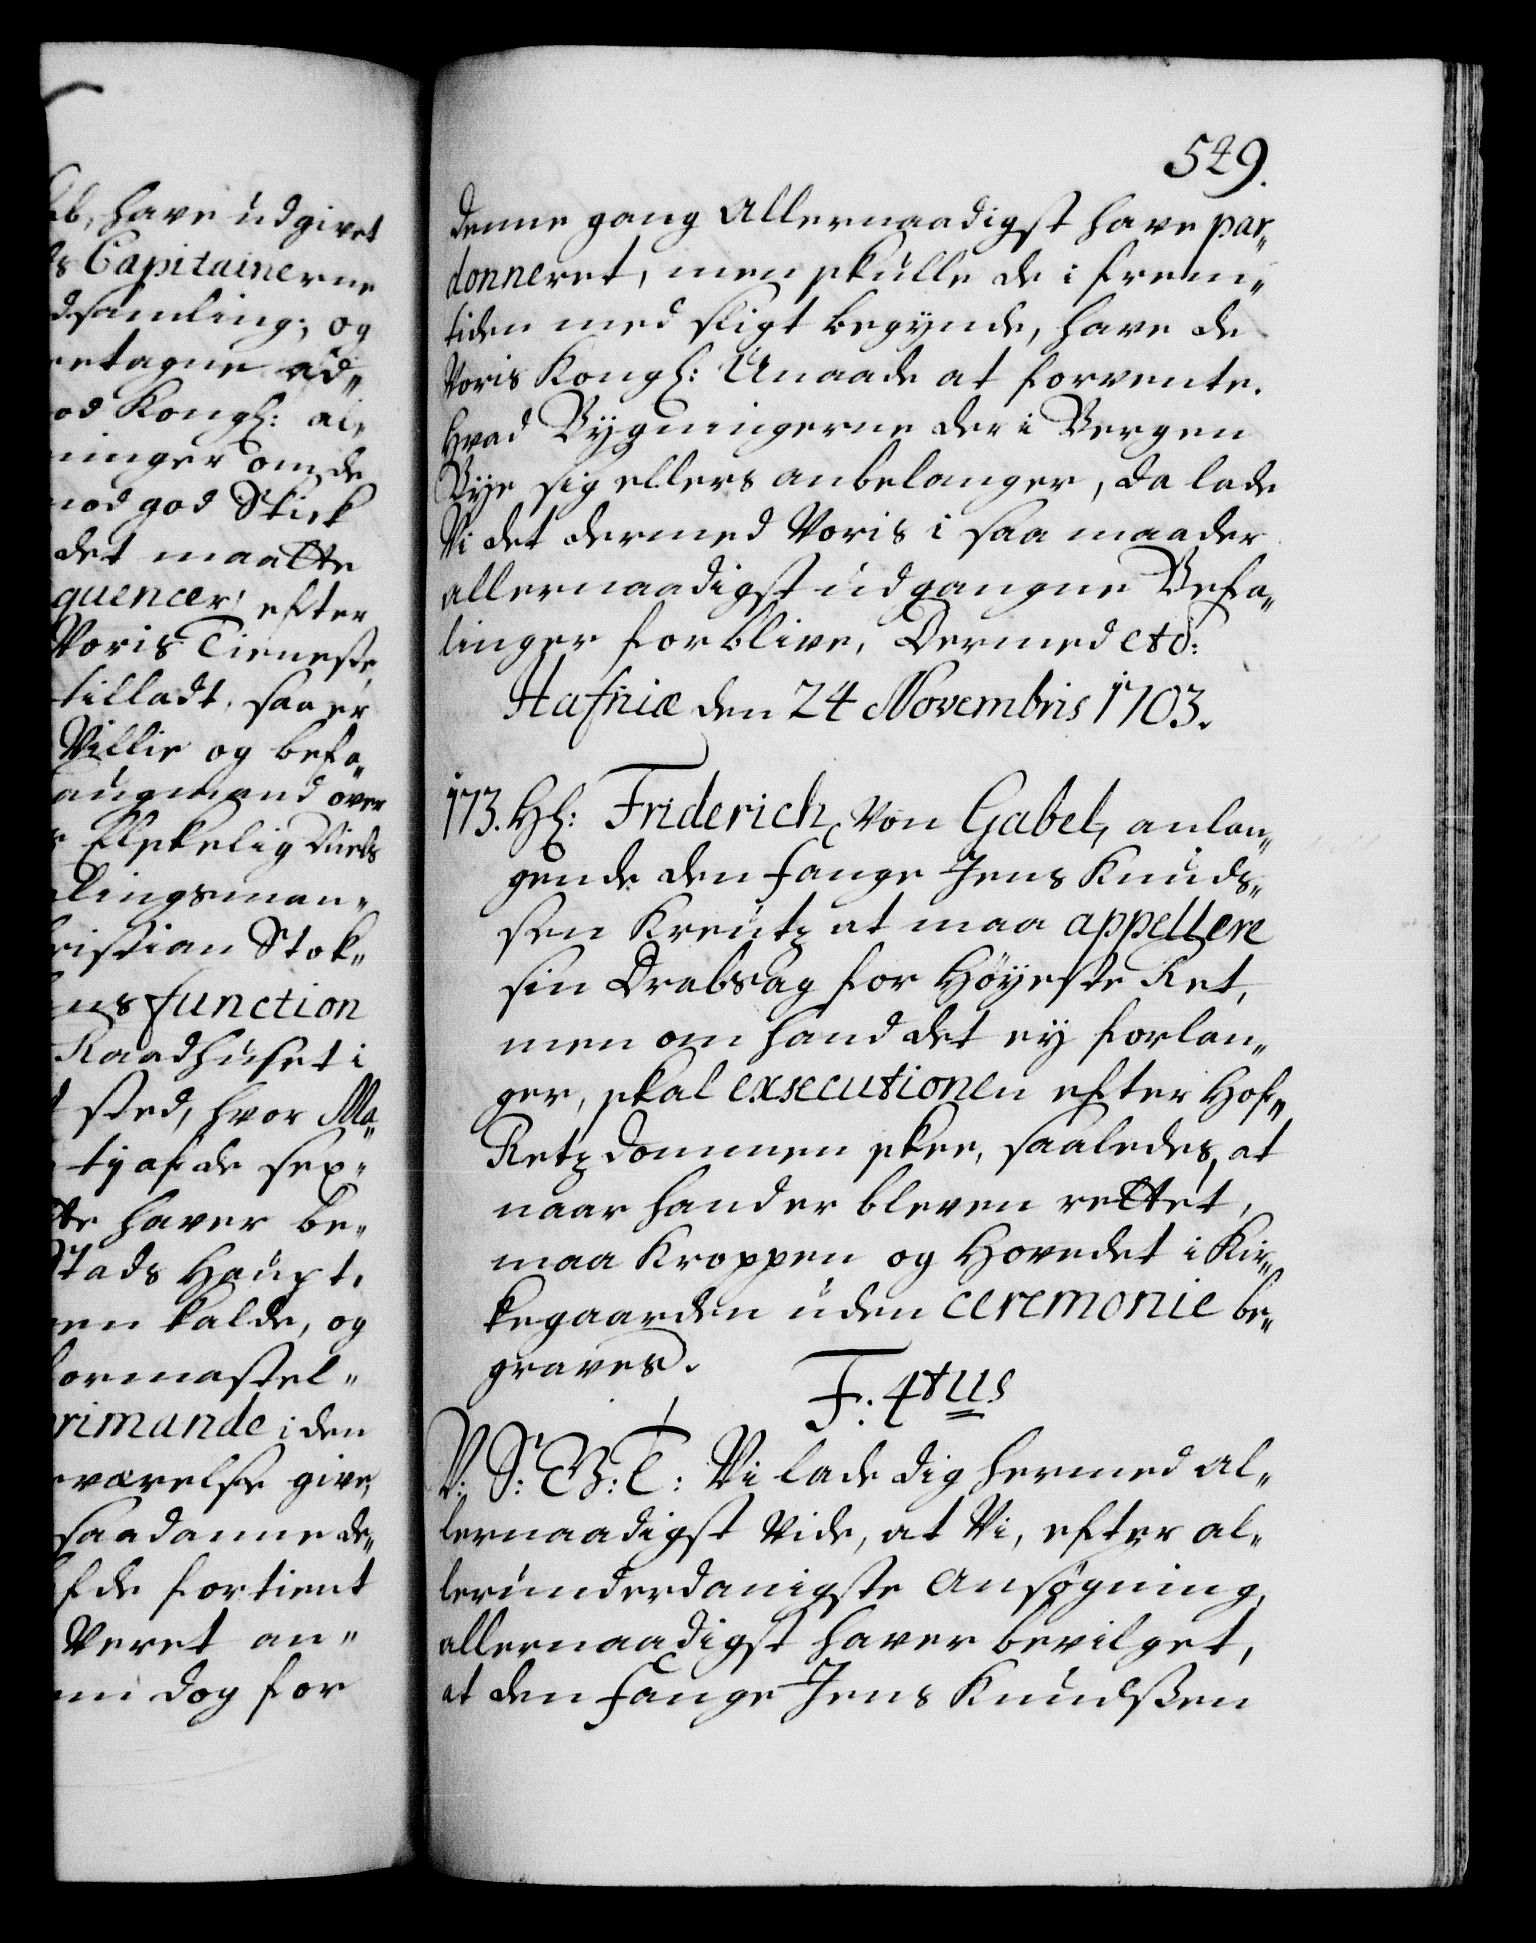 ab, have udgivet
ds Capitainerne
dsamling, og
retagne ad„
od Kongl: al„
ninger om de
mod god Skik
det maatte
quencer, efter
Voris Tieneste
tilladt, saa er
Villie og befa„
augmand over
s Elskelig Niels
dlingsman„
hristian Stok„
ens function
Raadhuset i
t sted, hvor Ma„
ty af de sex„
tte haver be„
Stads Haupt„
men kalde, og
formastel„
rimande i den
værelse give,
saadanne de„
fde fortient
Veret an„
mi dog for
549.
denne gang Allernaadigst have par„
donneret, men skulle de i frem„
tiden med sligt begynde, have de
Voris Kongl: Unaade at forvente.
Hvad Bygningerne der i Bergen
Bye sig ellers anbelanger, da lade
Vi det dermed Voris i saa maader
allernaadigst udgangne Befa„
linger forblive, Dermed etc:
Hafniæ den 24 Novembris 1703.
173. Hl: Friderich Von Gabel, anlan„
gende den fange Jens Knuds„
sen Kreutz at maa appellere
sin Drabsag for Høyeste Ret,
men om hand det ey forlan„
ger, skal exsecutionen efter Hof„
Retz dommen skee, saaledes, at
naar hand er bleven rettet,
maa Kroppen og Hovedet i Kir„
kegaarden uden ceremonie be„
graves.
F: 4tus
V: S: G: T: Vi lade dig hermed al„
lernaadigst vide, at Vi, efter al„
lerunderdanigste Ansøgning,
allernaadigst haver bevilget,
at den fange Jens Knudssen